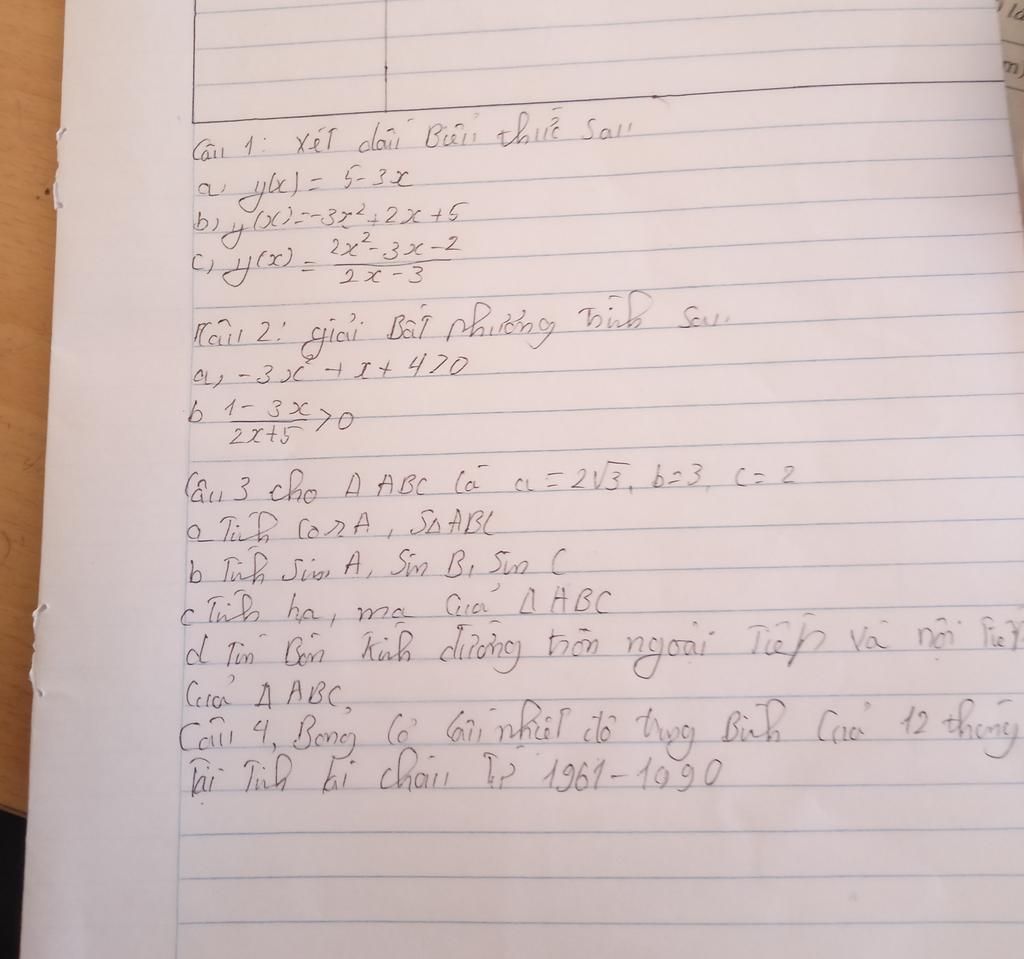 Câu 1: Xét dấu Biểu thức Sau
a, y(x) = 5-3x
b, y(x) = -3x² + 2x + 5
c, y(x) = \frac{2x² - 3x - 2}{2x - 3}
Câu 2: giải Bất phương trình Sau
a, -3x² + x + 4 > 0
b \frac{1 - 3x}{2x+5} > 0
Câu 3 cho Δ ABC Có a = 2√3, b = 3, c = 2
a Tính Cos A, SΔ ABC
b Tính Sin A, Sin B, Sin C
c Tính ha, ma Của Δ ABC
d Tín Bán Kính đường tròn ngoại Tiếp và nội Tiếp
Của Δ ABC,
Câu 4, nhiệt độ trung Bình Của 12 tháng
Tại Tỉnh lai châu Từ 1961-1990